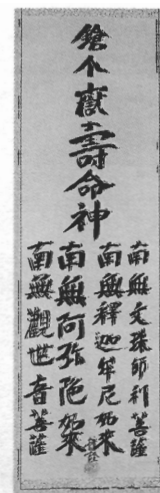 鎗个嶽壽命神
南無文珠師利菩薩
南無釋迦牟尼如來
南無阿弥陁如來
南無觀世音菩薩